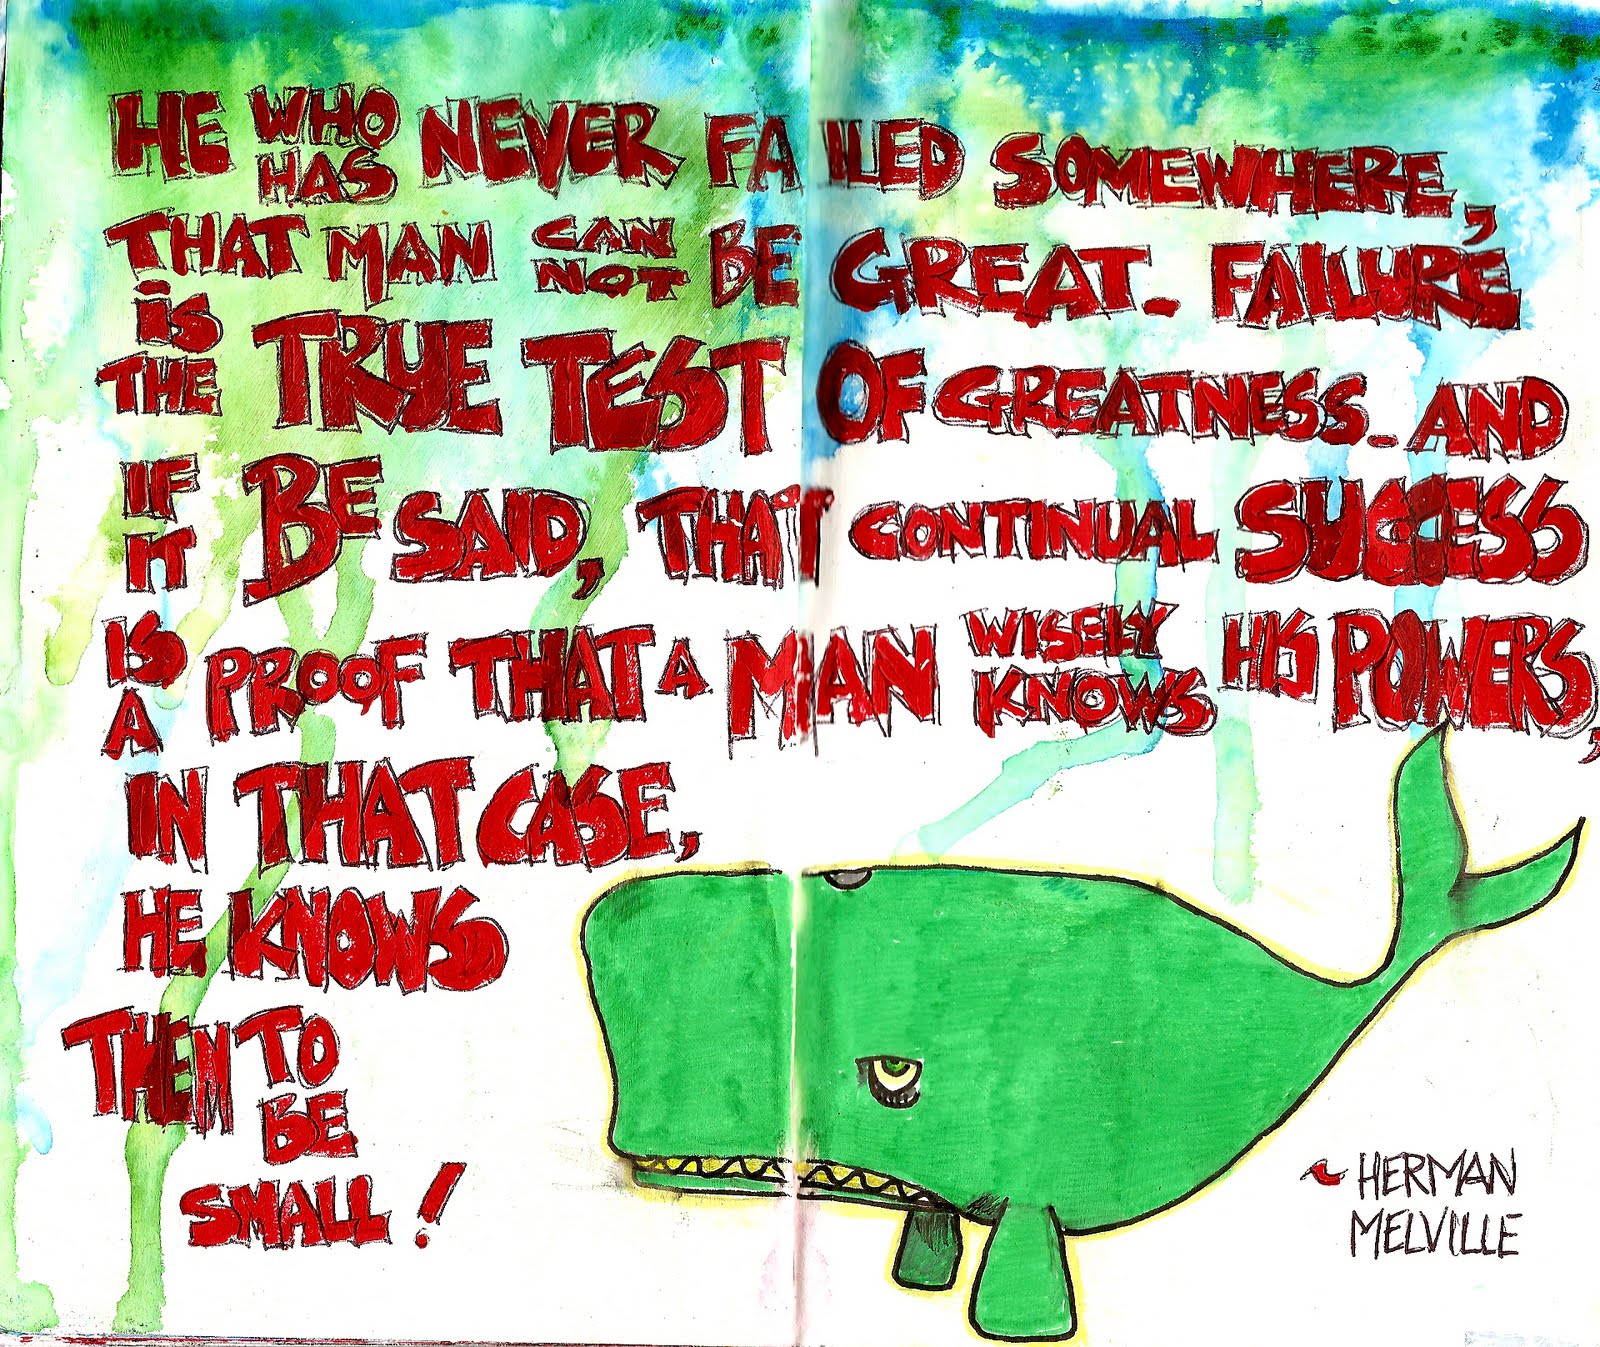 HE WHO HAS NEVER FAILED SOMEWHERE,
THAT MAN CAN NOT BE GREAT. FAILURE
IS THE TRUE TEST OF GREATNESS. AND
IF IT BE SAID, THAT CONTINUAL SUCCESS
IS A PROOF THAT A MAN WISELY KNOWS HIS POWERS,
IN THAT CASE,
HE KNOWS
THEM TO BE
SMALL!
~ HERMAN
MELVILLE